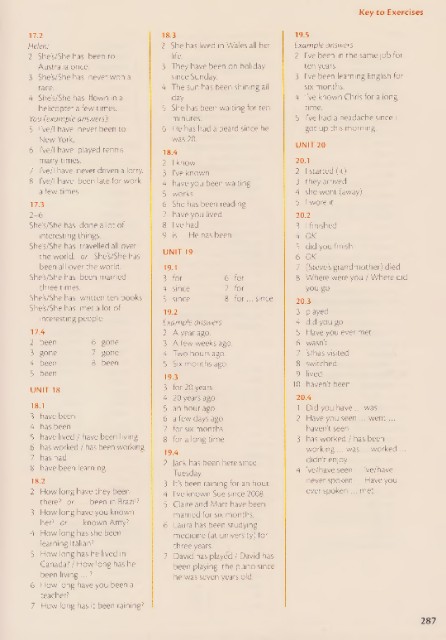 Key to Exercises
17.2
Helen:
2 She's/She has been to
Australia once.
3 She's/She has never won a
race.
4 She's/She has flown in a
helicopter a few times.
You (example answers):
5 I've/I have never been to
New York.
6 I've/I have played tennis
many times.
7 I've/I have never driven a lorry.
8 I've/I have been late for work
a few times.
17.3
2–6
She's/She has done a lot of
interesting things.
She's/She has travelled all over
the world. or She's/She has
been all over the world.
She's/She has been married
three times.
She's/She has written ten books.
She's/She has met a lot of
interesting people.
17.4
2 been 6 gone
3 gone 7 gone
4 been 8 been
5 been
UNIT 18
18.1
3 have been
4 has been
5 have lived / have been living
6 has worked / has been working
7 has had
8 have been learning
18.2
2 How long have they been
there? or … been in Brazil?
3 How long have you known
her? or … known Amy?
4 How long has she been
learning Italian?
5 How long has he lived in
Canada? / How long has he
been living … ?
6 How long have you been a
teacher?
7 How long has it been raining?
18.3
2 She has lived in Wales all her
life.
3 They have been on holiday
since Sunday.
4 The sun has been shining all
day.
5 She has been waiting for ten
minutes.
6 He has had a beard since he
was 20.
18.4
2 I know
3 I've known
4 have you been waiting
5 works
6 She has been reading
7 have you lived
8 I've had
9 is … He has been
UNIT 19
19.1
3 for 6 for
4 since 7 for
5 since 8 for … since
19.2
Example answers:
2 A year ago.
3 A few weeks ago.
4 Two hours ago.
5 Six months ago.
19.3
3 for 20 years
4 20 years ago
5 an hour ago
6 a few days ago
7 for six months
8 for a long time
19.4
2 Jack has been here since
Tuesday.
3 It's been raining for an hour.
4 I've known Sue since 2008.
5 Claire and Matt have been
married for six months.
6 Laura has been studying
medicine (at university) for
three years.
7 David has played / David has
been playing the piano since
he was seven years old.
19.5
Example answers:
2 I've been in the same job for
ten years.
3 I've been learning English for
six months.
4 I've known Chris for a long
time.
5 I've had a headache since I
got up this morning.
UNIT 20
20.1
2 I started (it)
3 they arrived
4 she went (away)
5 I wore it
20.2
3 I finished
4 OK
5 did you finish
6 OK
7 (Steve's grandmother) died
8 Where were you / Where did
you go
20.3
3 played
4 did you go
5 Have you ever met
6 wasn't
7 's/has visited
8 switched
9 lived
10 haven't been
20.4
1 Did you have … was
2 Have you seen … went …
haven't seen
3 has worked / has been
working … was … worked …
didn't enjoy
4 've/have seen … 've/have
never spoken … Have you
ever spoken … met
287